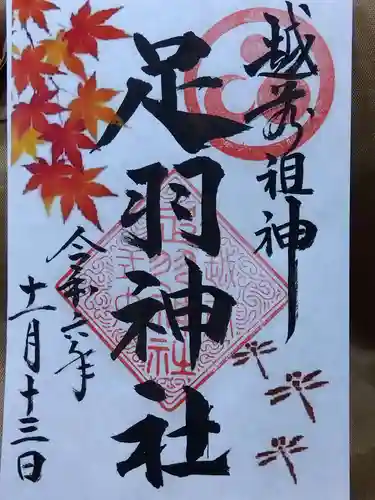 越前祖神
足羽神社
令和二年
十一月十三日